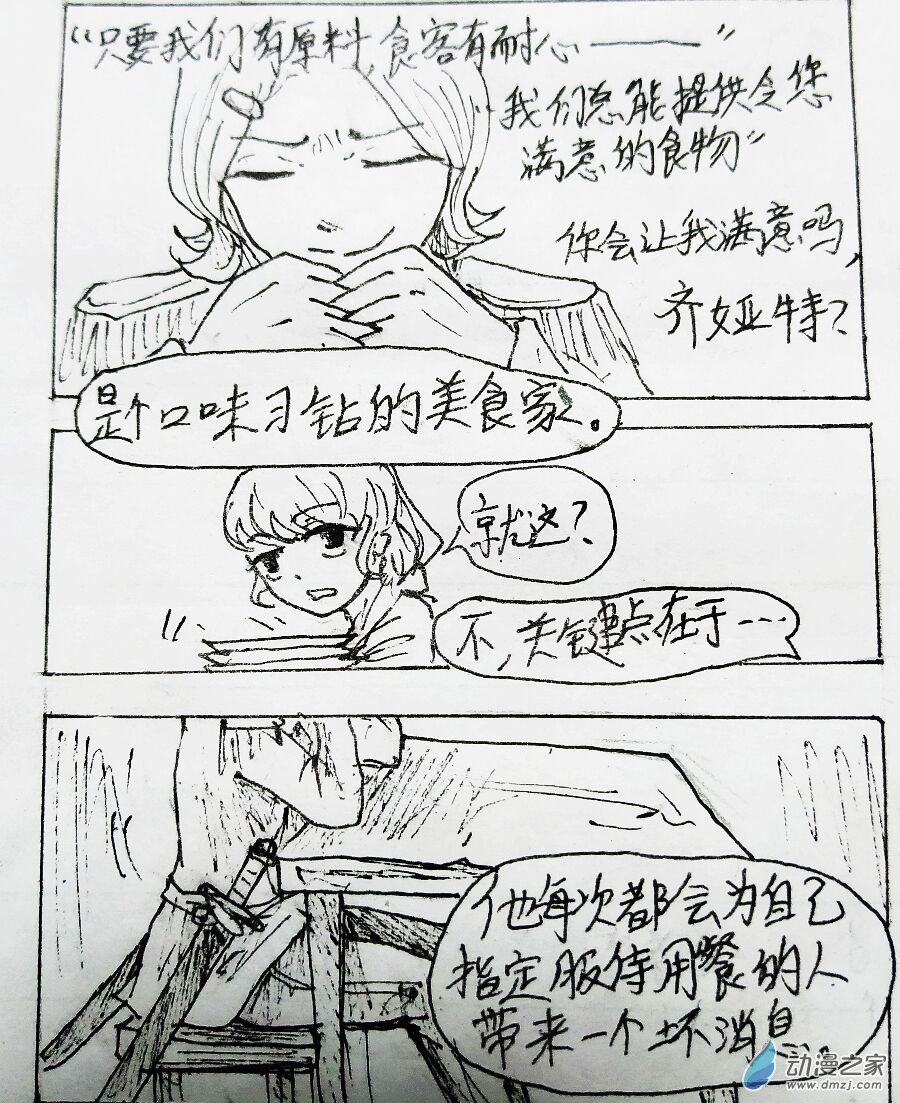 “只要我们有原料，食客有耐心——”
“我们总能提供令您
满意的食物”
你会让我满意吗，
齐娅特？
是个口味刁钻的美食家。
就这？
不，关键点在于---
他每次都会为自己
指定服侍用餐的人
带来一个坏消息。
动漫之家
www.dmzj.com